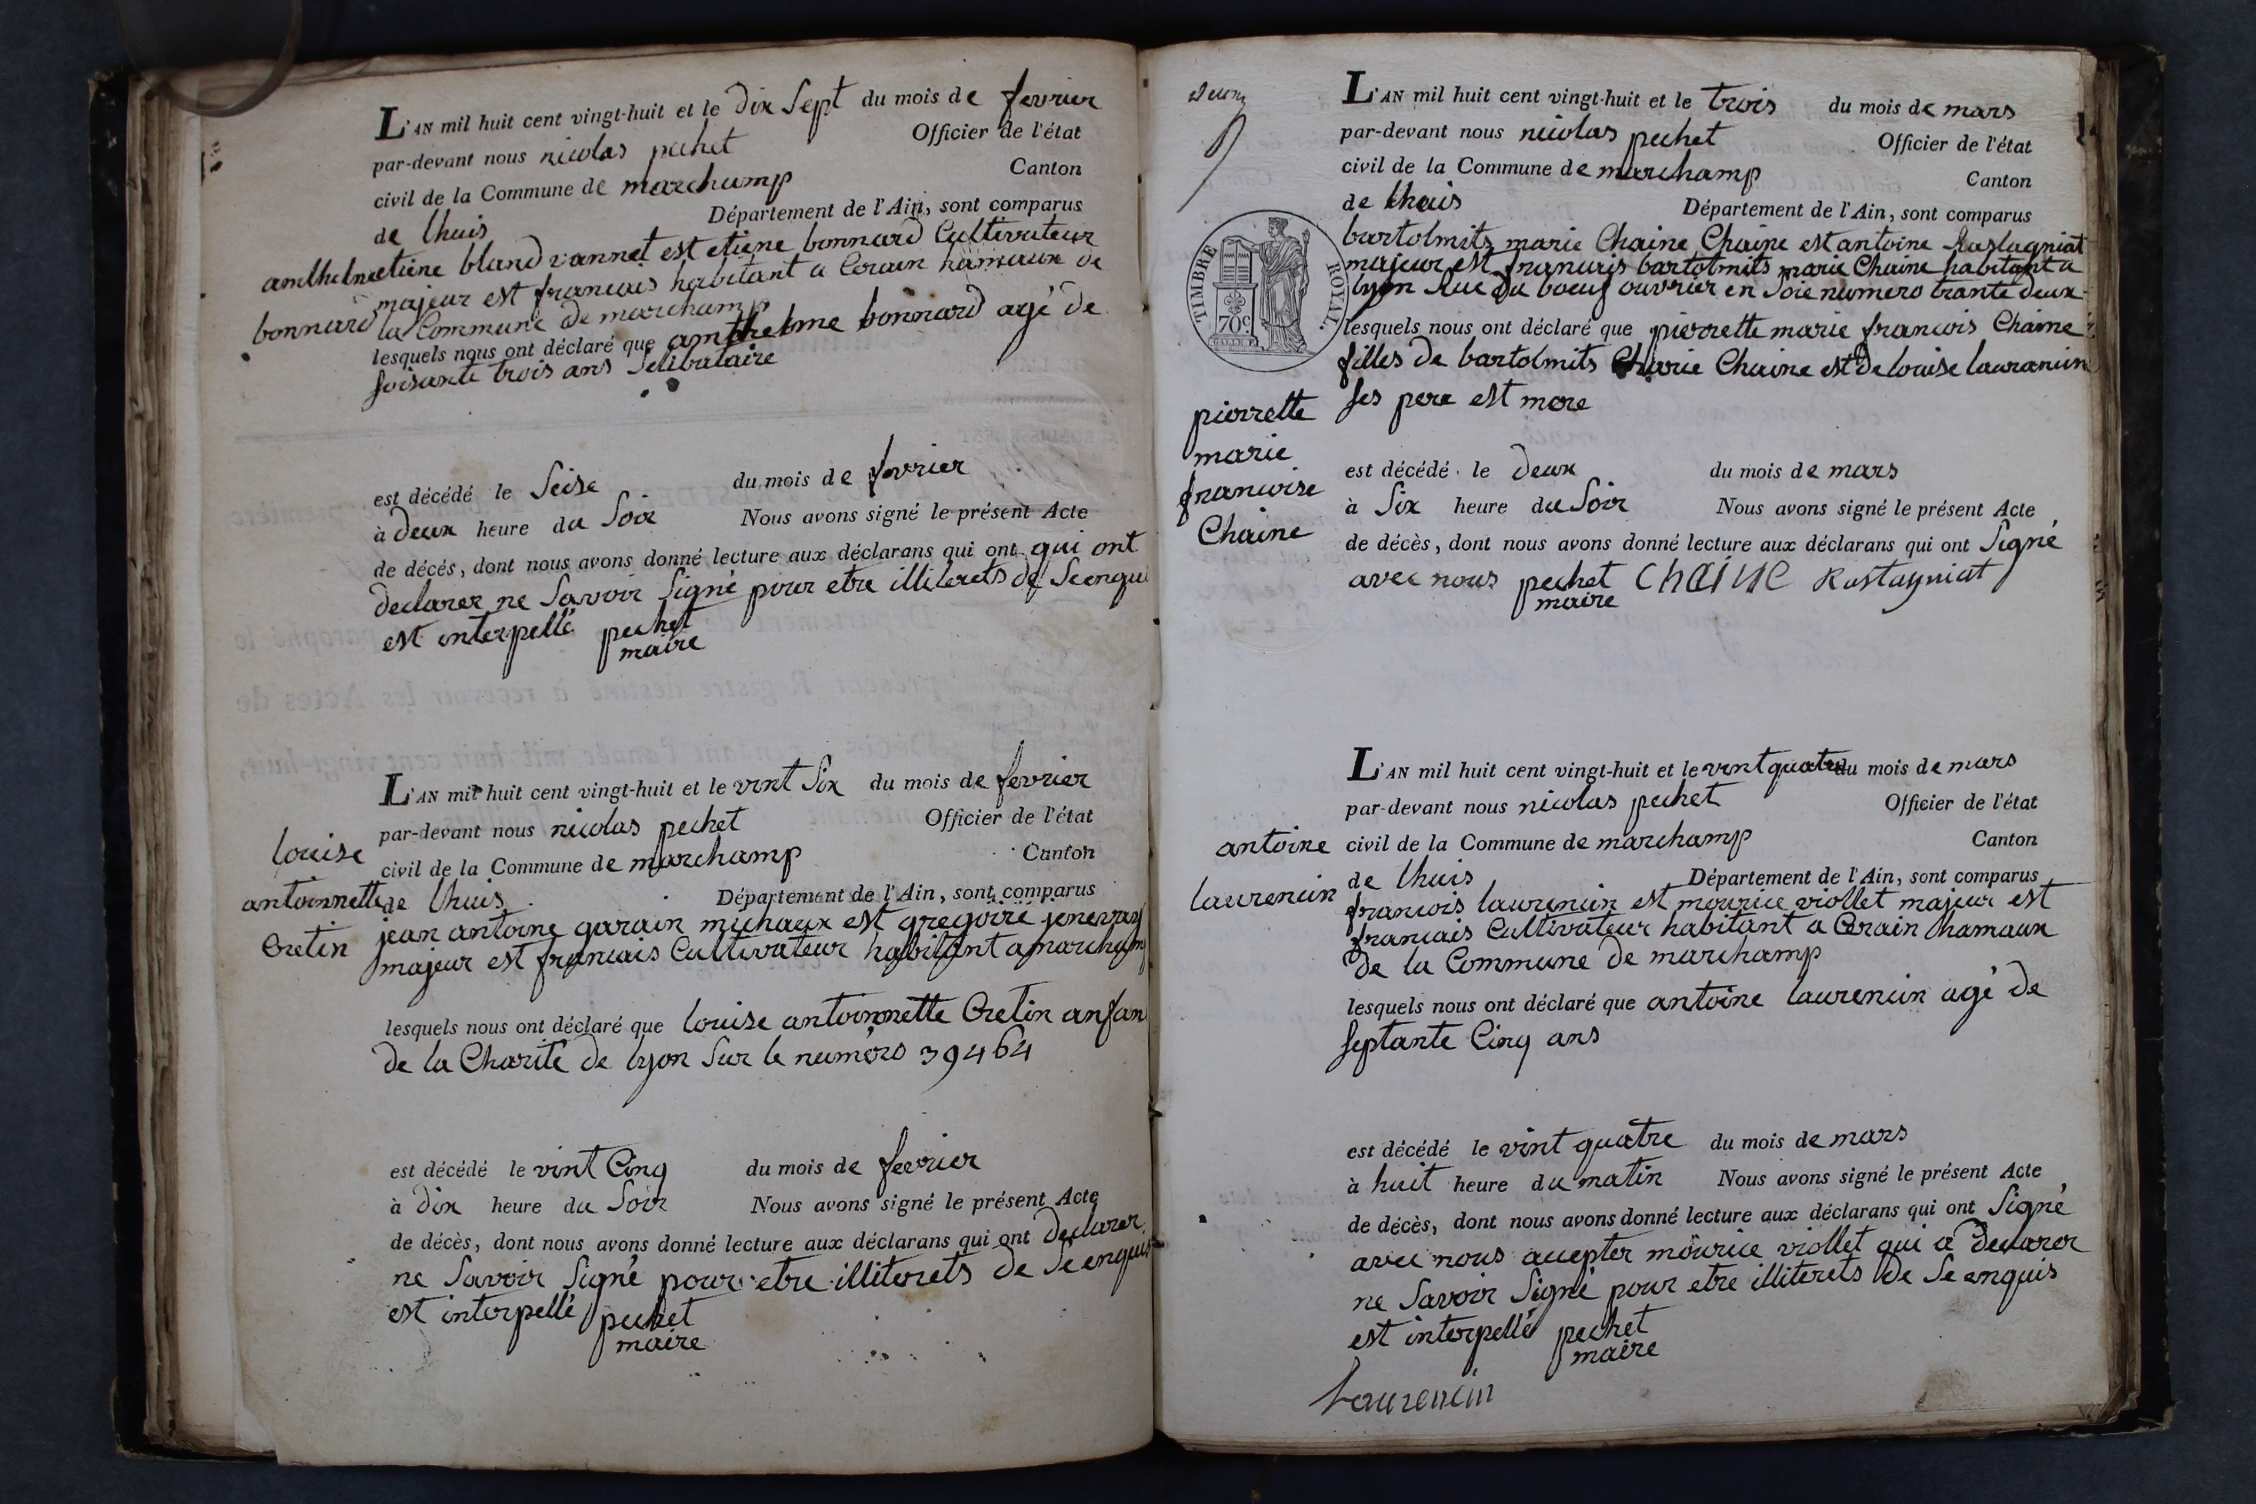 L'AN mil huit cent vingt-huit et le dix Sept du mois de fevrier
par-devant nous nicolas pechet Officier de l'état
civil de la Commune de marchamp Canton
de lhuis Département de l'Ain, sont comparus
etiene bland vannet est etiene bonnard Cultivateur
majeur est francais habitant a Cerain hamaux de
la Commune de marchamp
anthelme
bonnard
lesquels nous ont déclaré que amthelme bonnard agé de
soisante trois ans Selibataire
est décédé le Seise du mois de fevrier
à deux heure du Soir Nous avons signé le présent Acte
de décès, dont nous avons donné lecture aux déclarans qui ont qui ont
declarer ne Savoir Signé pour etre illiterets de Se enqui
est interpellé pechet
maire
L'AN mil huit cent vingt-huit et le vint Six du mois de fevrier
par-devant nous nicolas pechet Officier de l'état
civil de la Commune de marchamp Canton
de lhuis Département de l'Ain, sont comparus
louise
antoinnette
Cretin
jean antoine garain michaux est gregoire
majeur est francais Cultivateur habitant a marchamp
lesquels nous ont déclaré que louise antoinnette Cretin anfan
de la Charité de lyon Sur le numéro 39464
est décédé le vint Cinq du mois de fevrier
à dix heure du Soir Nous avons signé le présent Acte
de décès, dont nous avons donné lecture aux déclarans qui ont declarer
ne Savoir Signé pour etre illiterets de Se enquis
est interpellé pechet
maire
L'AN mil huit cent vingt-huit et le trois du mois de mars
par-devant nous nicolas pechet Officier de l'état
civil de la Commune de marchamp Canton
de lhuis Département de l'Ain, sont comparus
bartolmits marie Chaine Chaine est antoine Rastagniat
majeur est francais bartolmits marie Chaine habitant a
lyon Rue du boeuf ouvrier en Soie numero trante deux
TIMBRE ROYAL
70c
lesquels nous ont déclaré que pierrette marie francois Chaine
filles de bartolmits marie Chaine est de louise lauranin
ses pere est mere
pierrette
marie
francoise
Chaine
est décédé le deux du mois de mars
à Six heure du Soir Nous avons signé le présent Acte
de décès, dont nous avons donné lecture aux déclarans qui ont Signé
avec nous pechet Chaine Rastagniat
maire
L'AN mil huit cent vingt-huit et le vint quatre du mois de mars
par-devant nous nicolas pechet Officier de l'état
civil de la Commune de marchamp Canton
de lhuis Département de l'Ain, sont comparus
antoine
laurencin
francois laurencin est mourice viollet majeur est
francais Cultivateur habitant a Cerain hamaux
de la Commune de marchamp
lesquels nous ont déclaré que antoine laurencin agé de
septante Cinq ans
est décédé le vint quatre du mois de mars
à huit heure du matin Nous avons signé le présent Acte
de décès, dont nous avons donné lecture aux déclarans qui ont Signé
avec nous accepter mourice viollet qui a declarer
ne Savoir Signé pour etre illiterets de Se enquis
est interpellé pechet
maire
Laurencin